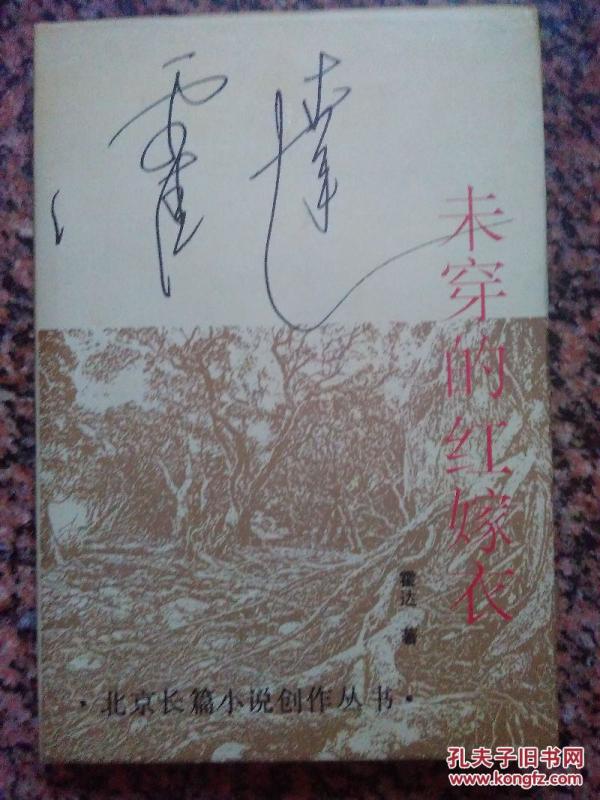 霍達
未穿的红嫁衣
霍达 著
·北京长篇小说创作丛书·
孔夫子旧书网
www.kongfz.com